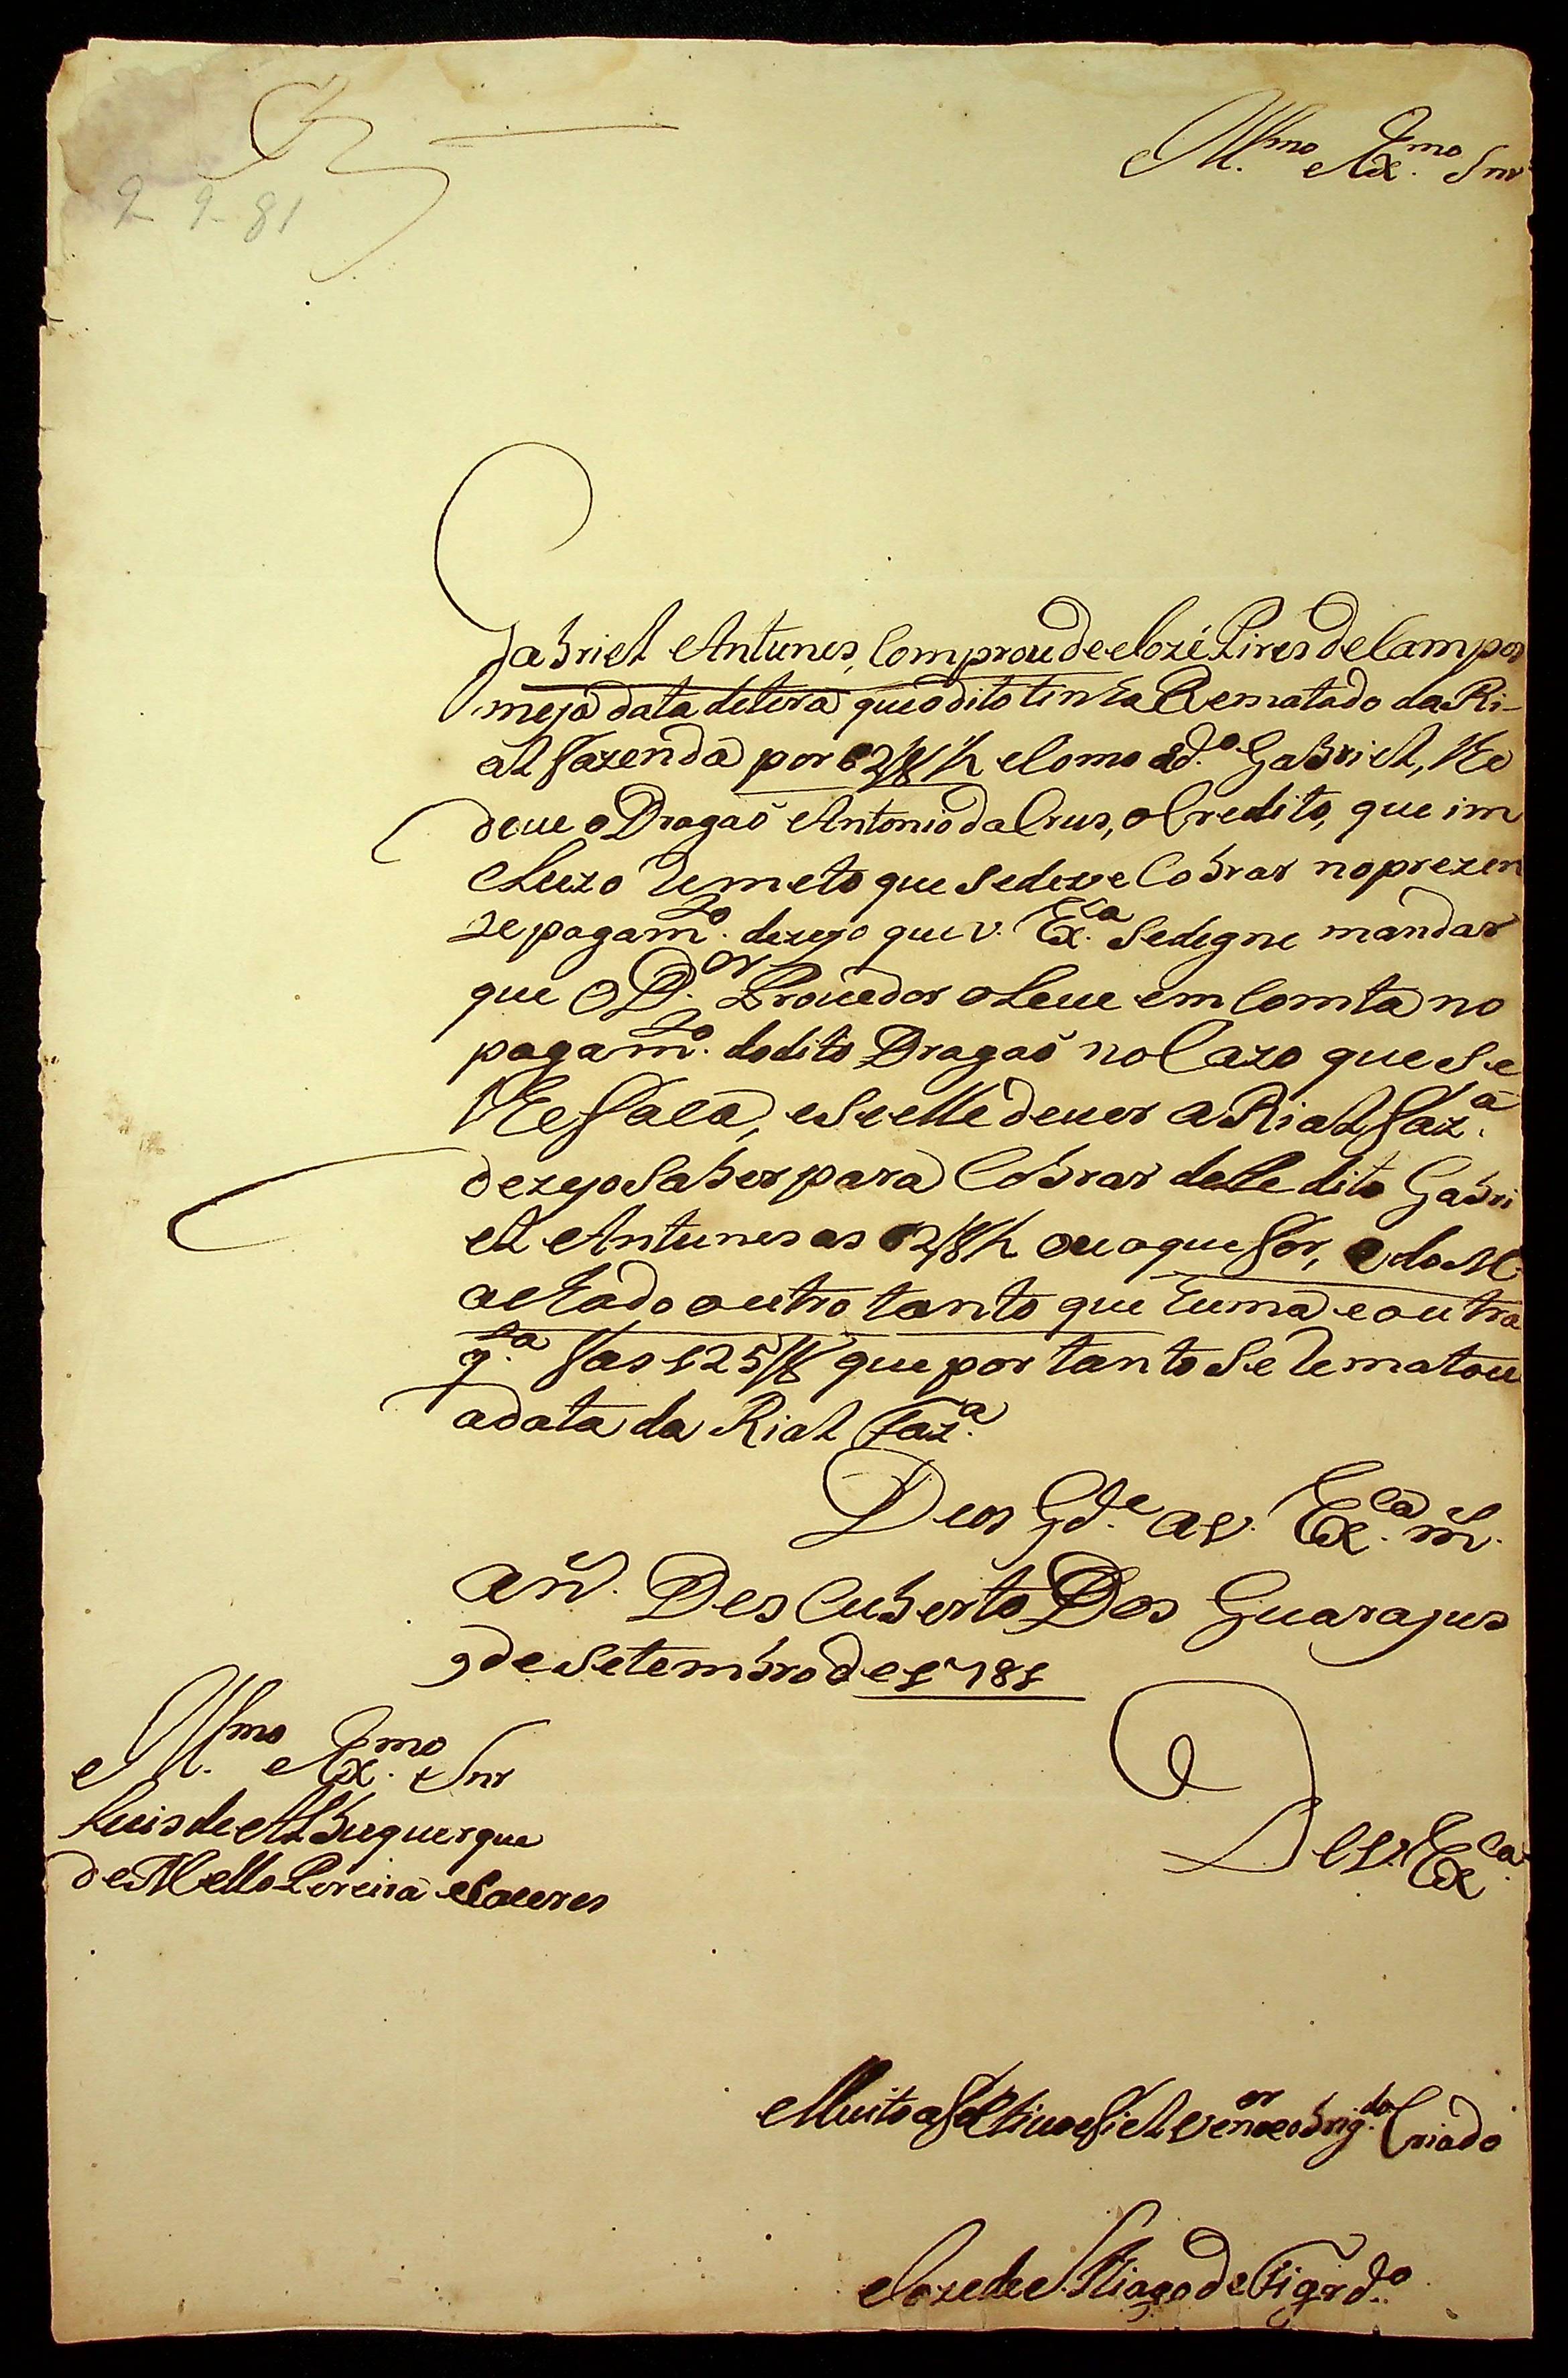 9-9-81
Ill.mo e Ex.mo Snr
Gabriel Antunes, Comprou de Jozé Pires de Campos
meja data de tera que o dito tinha Rematado da Ri-
al fazenda por 62/8 1/2 e Como ad.o Gabriel, he
deue o Dragaõ Antonio da Crus, o Credito, que im
cluzo Remeto que se deve Cobrar no prezen
te pagam.to dezejo que v. Ex.ca se degne mandar
que O D.or Prouedor o Leue em Comta no
pagam.to do dito Dragaõ no Cazo que se
he faça, e se elle deuer a Rial faz.a
dezejo Saber para Cobrar delle dito Gabri
el Antunes as 62/8 1/2 ou o que for, e do M
achado outro tanto que huma e outra
q.ta fas 125/8 que por tanto se Rematou
a data da Rial Faz.a
Deos G.de a V. Ex.ca m.s
an.s DesCuberto Dos Guarajus
9 de Setembro de 1781
Ill.mo e Ex.mo Snr
Luis de Albuquerque
de Mello Pereira e Caceres
De V. Ex.ca
Muito afectivo e fiel Ven.or e obrig.do Criado
Joze de S.Tiago de Figrd.o